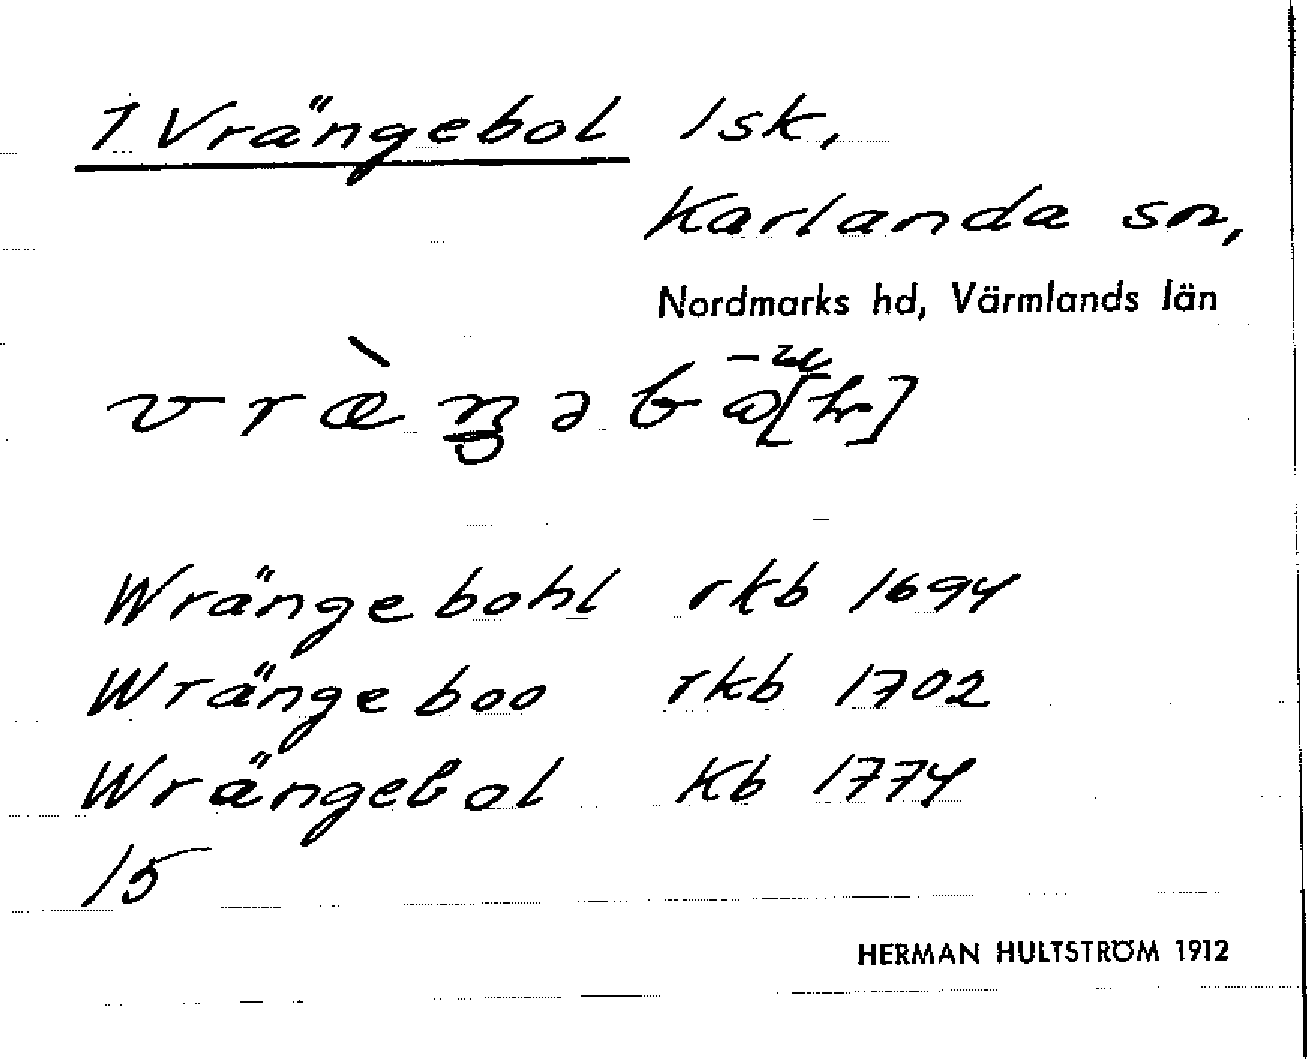 1 Vrängebol 1sk,
Karlanda sn,
Nordmarks hd, Värmlands län
Wrängebohl rkb 1694
Wrängeboo rkb 1702
Wrängebol Kb 1774
15
HERMAN HULTSTRÖM 1912